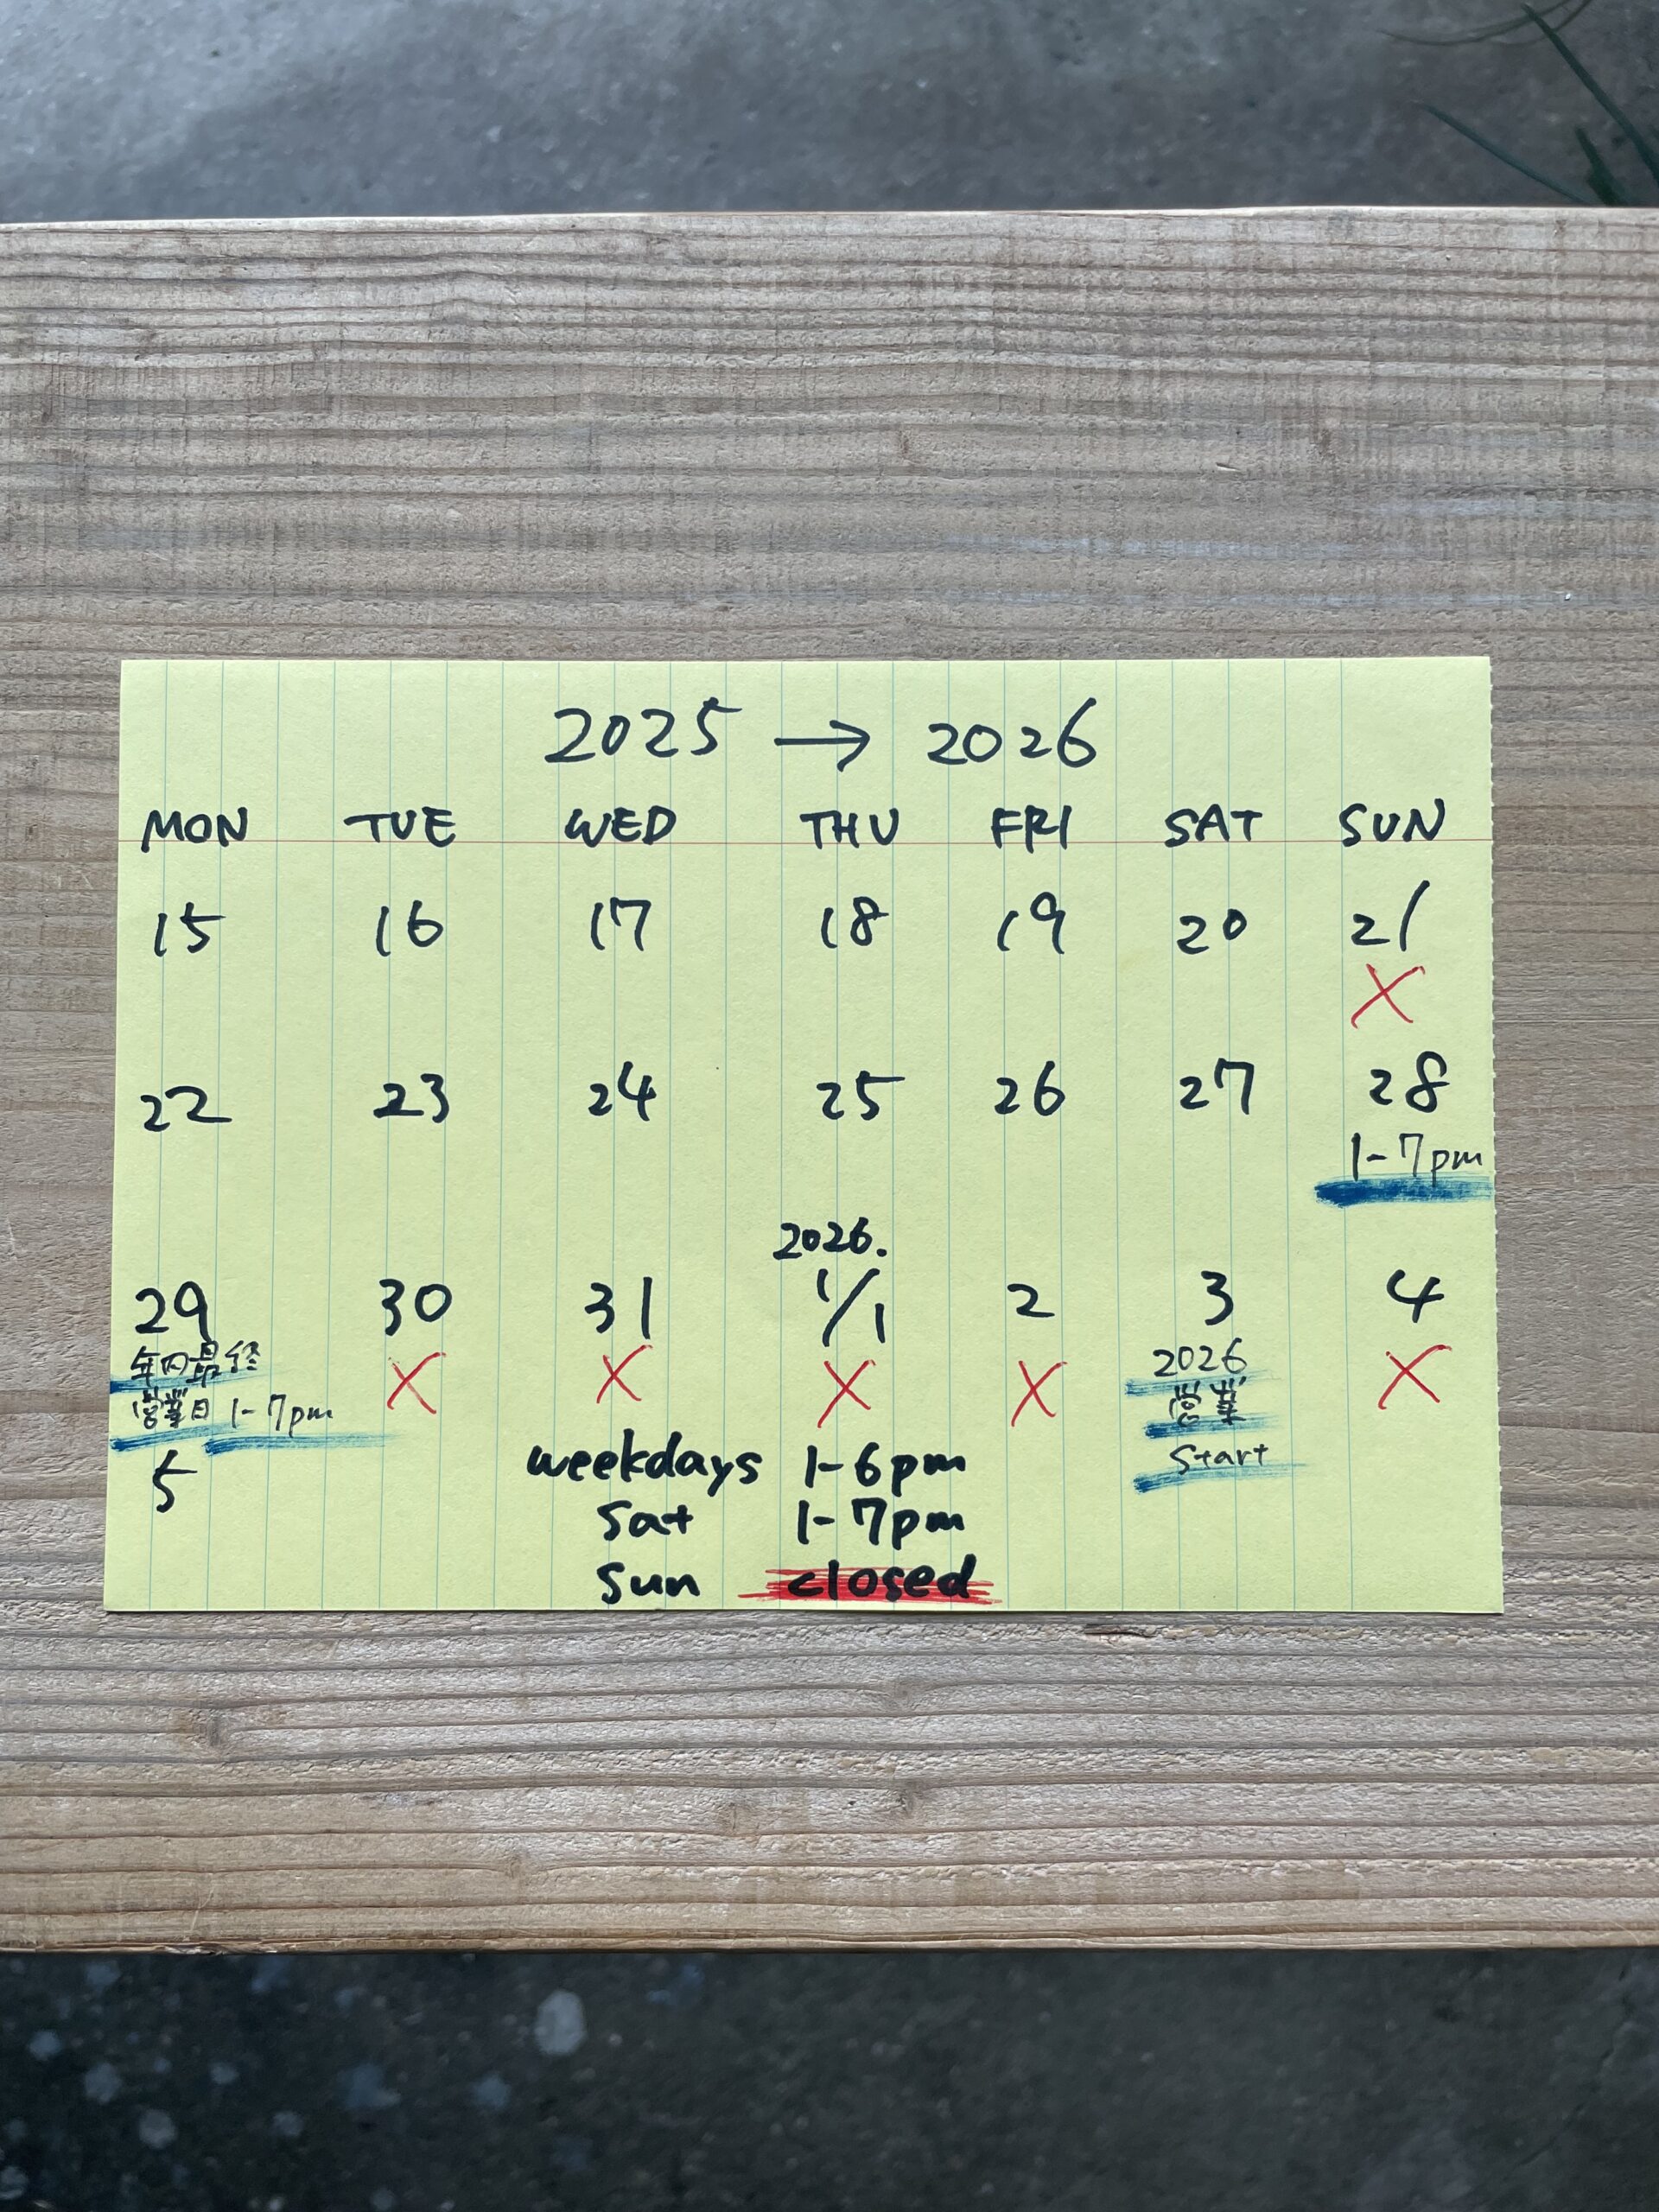 2025 → 2026
MON TUE WED THU FRI SAT SUN
15 16 17 18 19 20 21
X
22 23 24 25 26 27 28
1-7pm
2026.
29 30 31 1/1 2 3 4
年内最終 X X X X 2026 X
営業日 1-7pm 営業
Start
5
weekdays 1-6pm
Sat 1-7pm
Sun closed